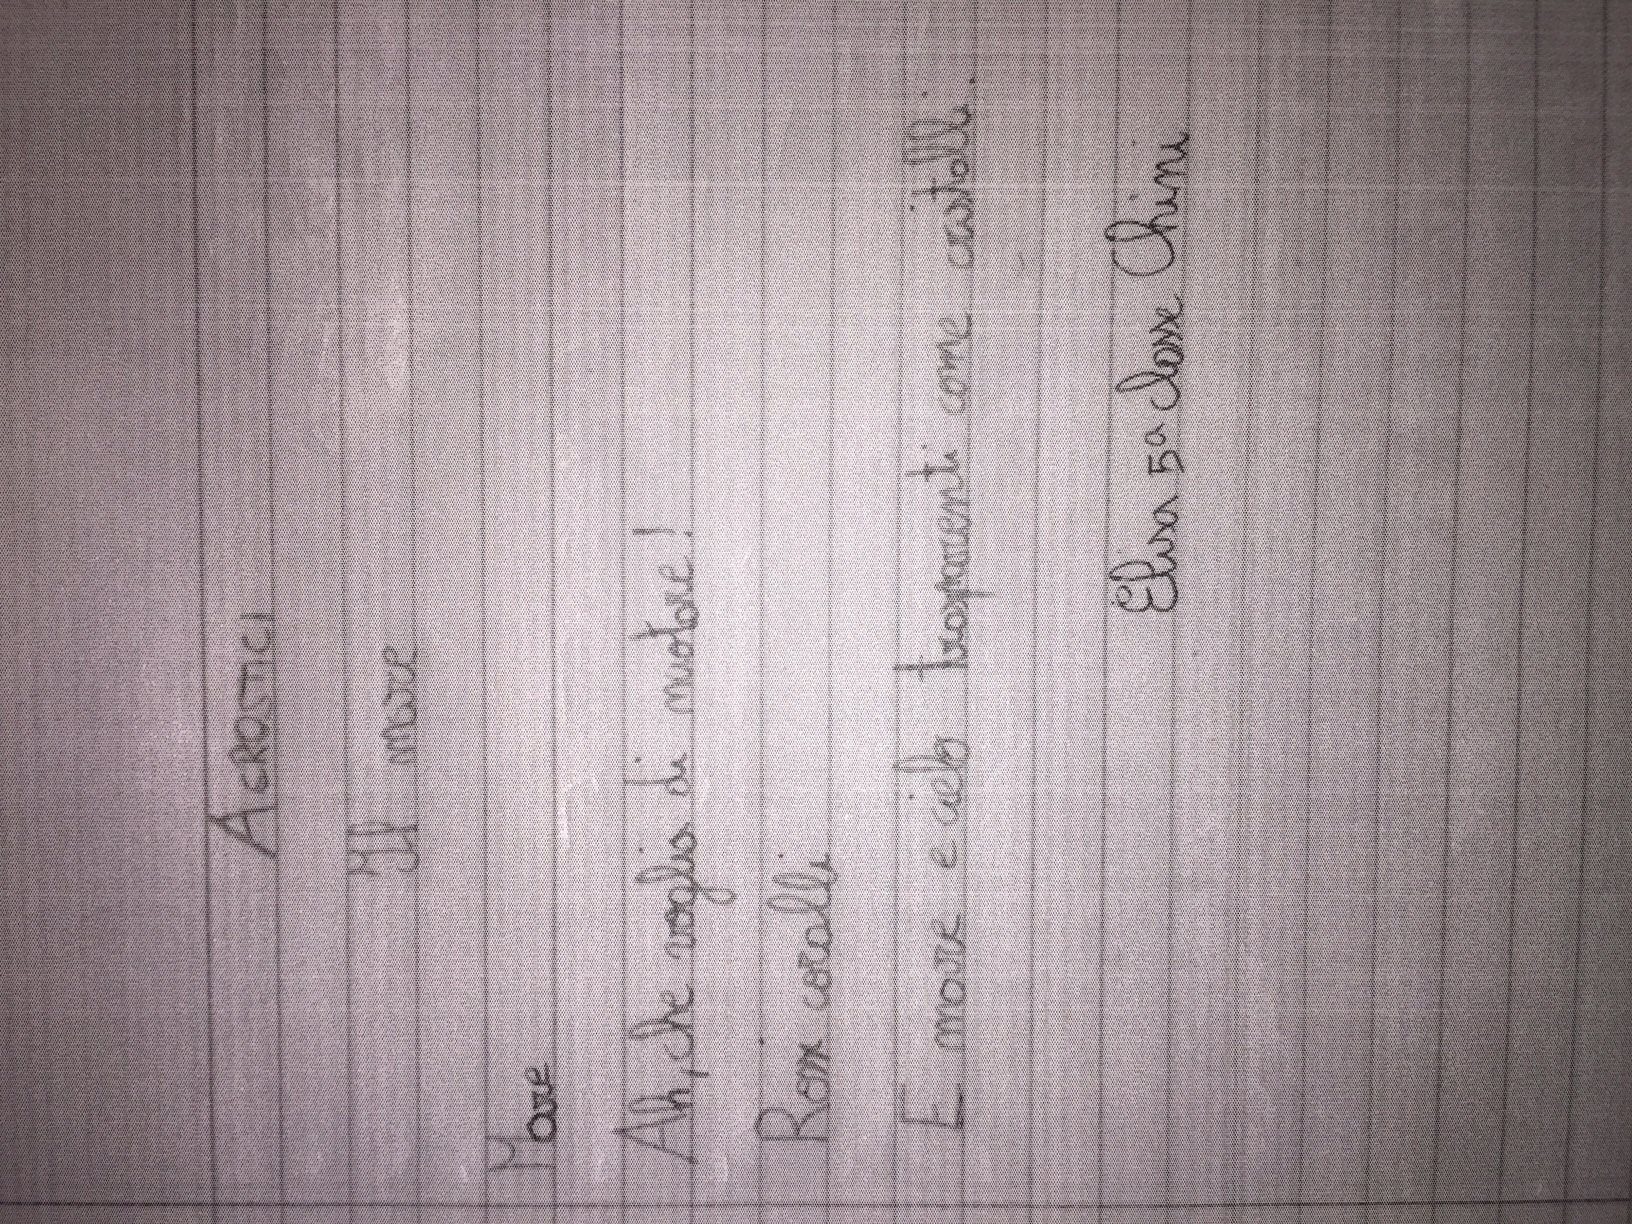 ACROSTICI
Il mare
Mare
Ah, che voglia di nuotare!
Rossi coralli
E mare e cielo trasparenti come cristalli.
Elisa 5a classe Chini